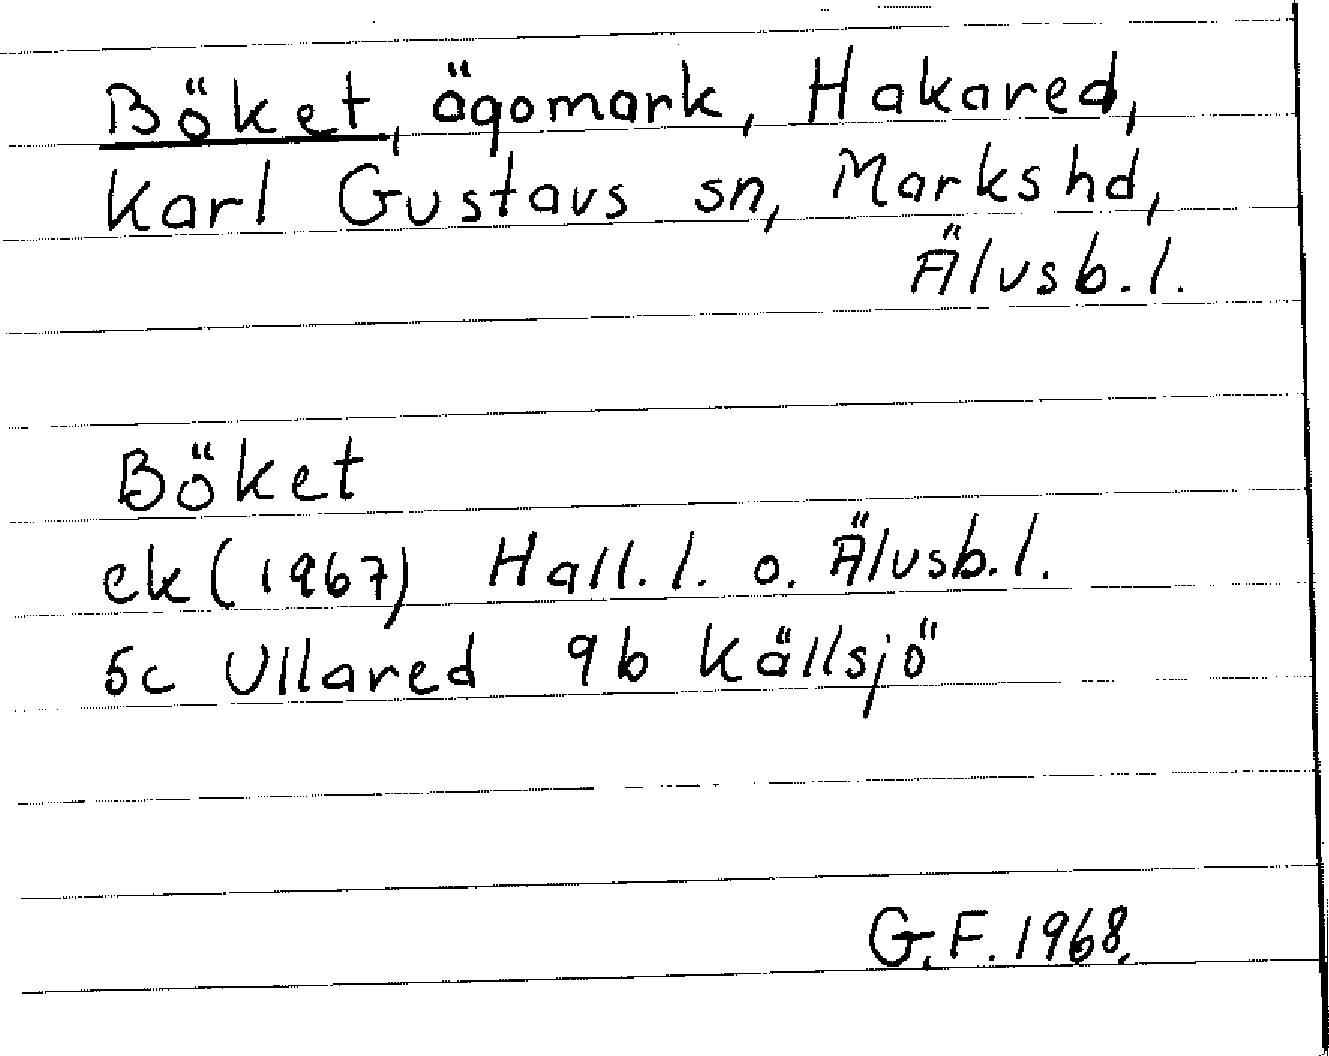 Böket, ägomark, Hakared,
Karl Gustavs sn, Marks hd,
Älvsb.l.
Böket
ek (1967) Hall. l. o. Älvsb. l.
5c Ullared 9b Källsjö
G.F. 1968.